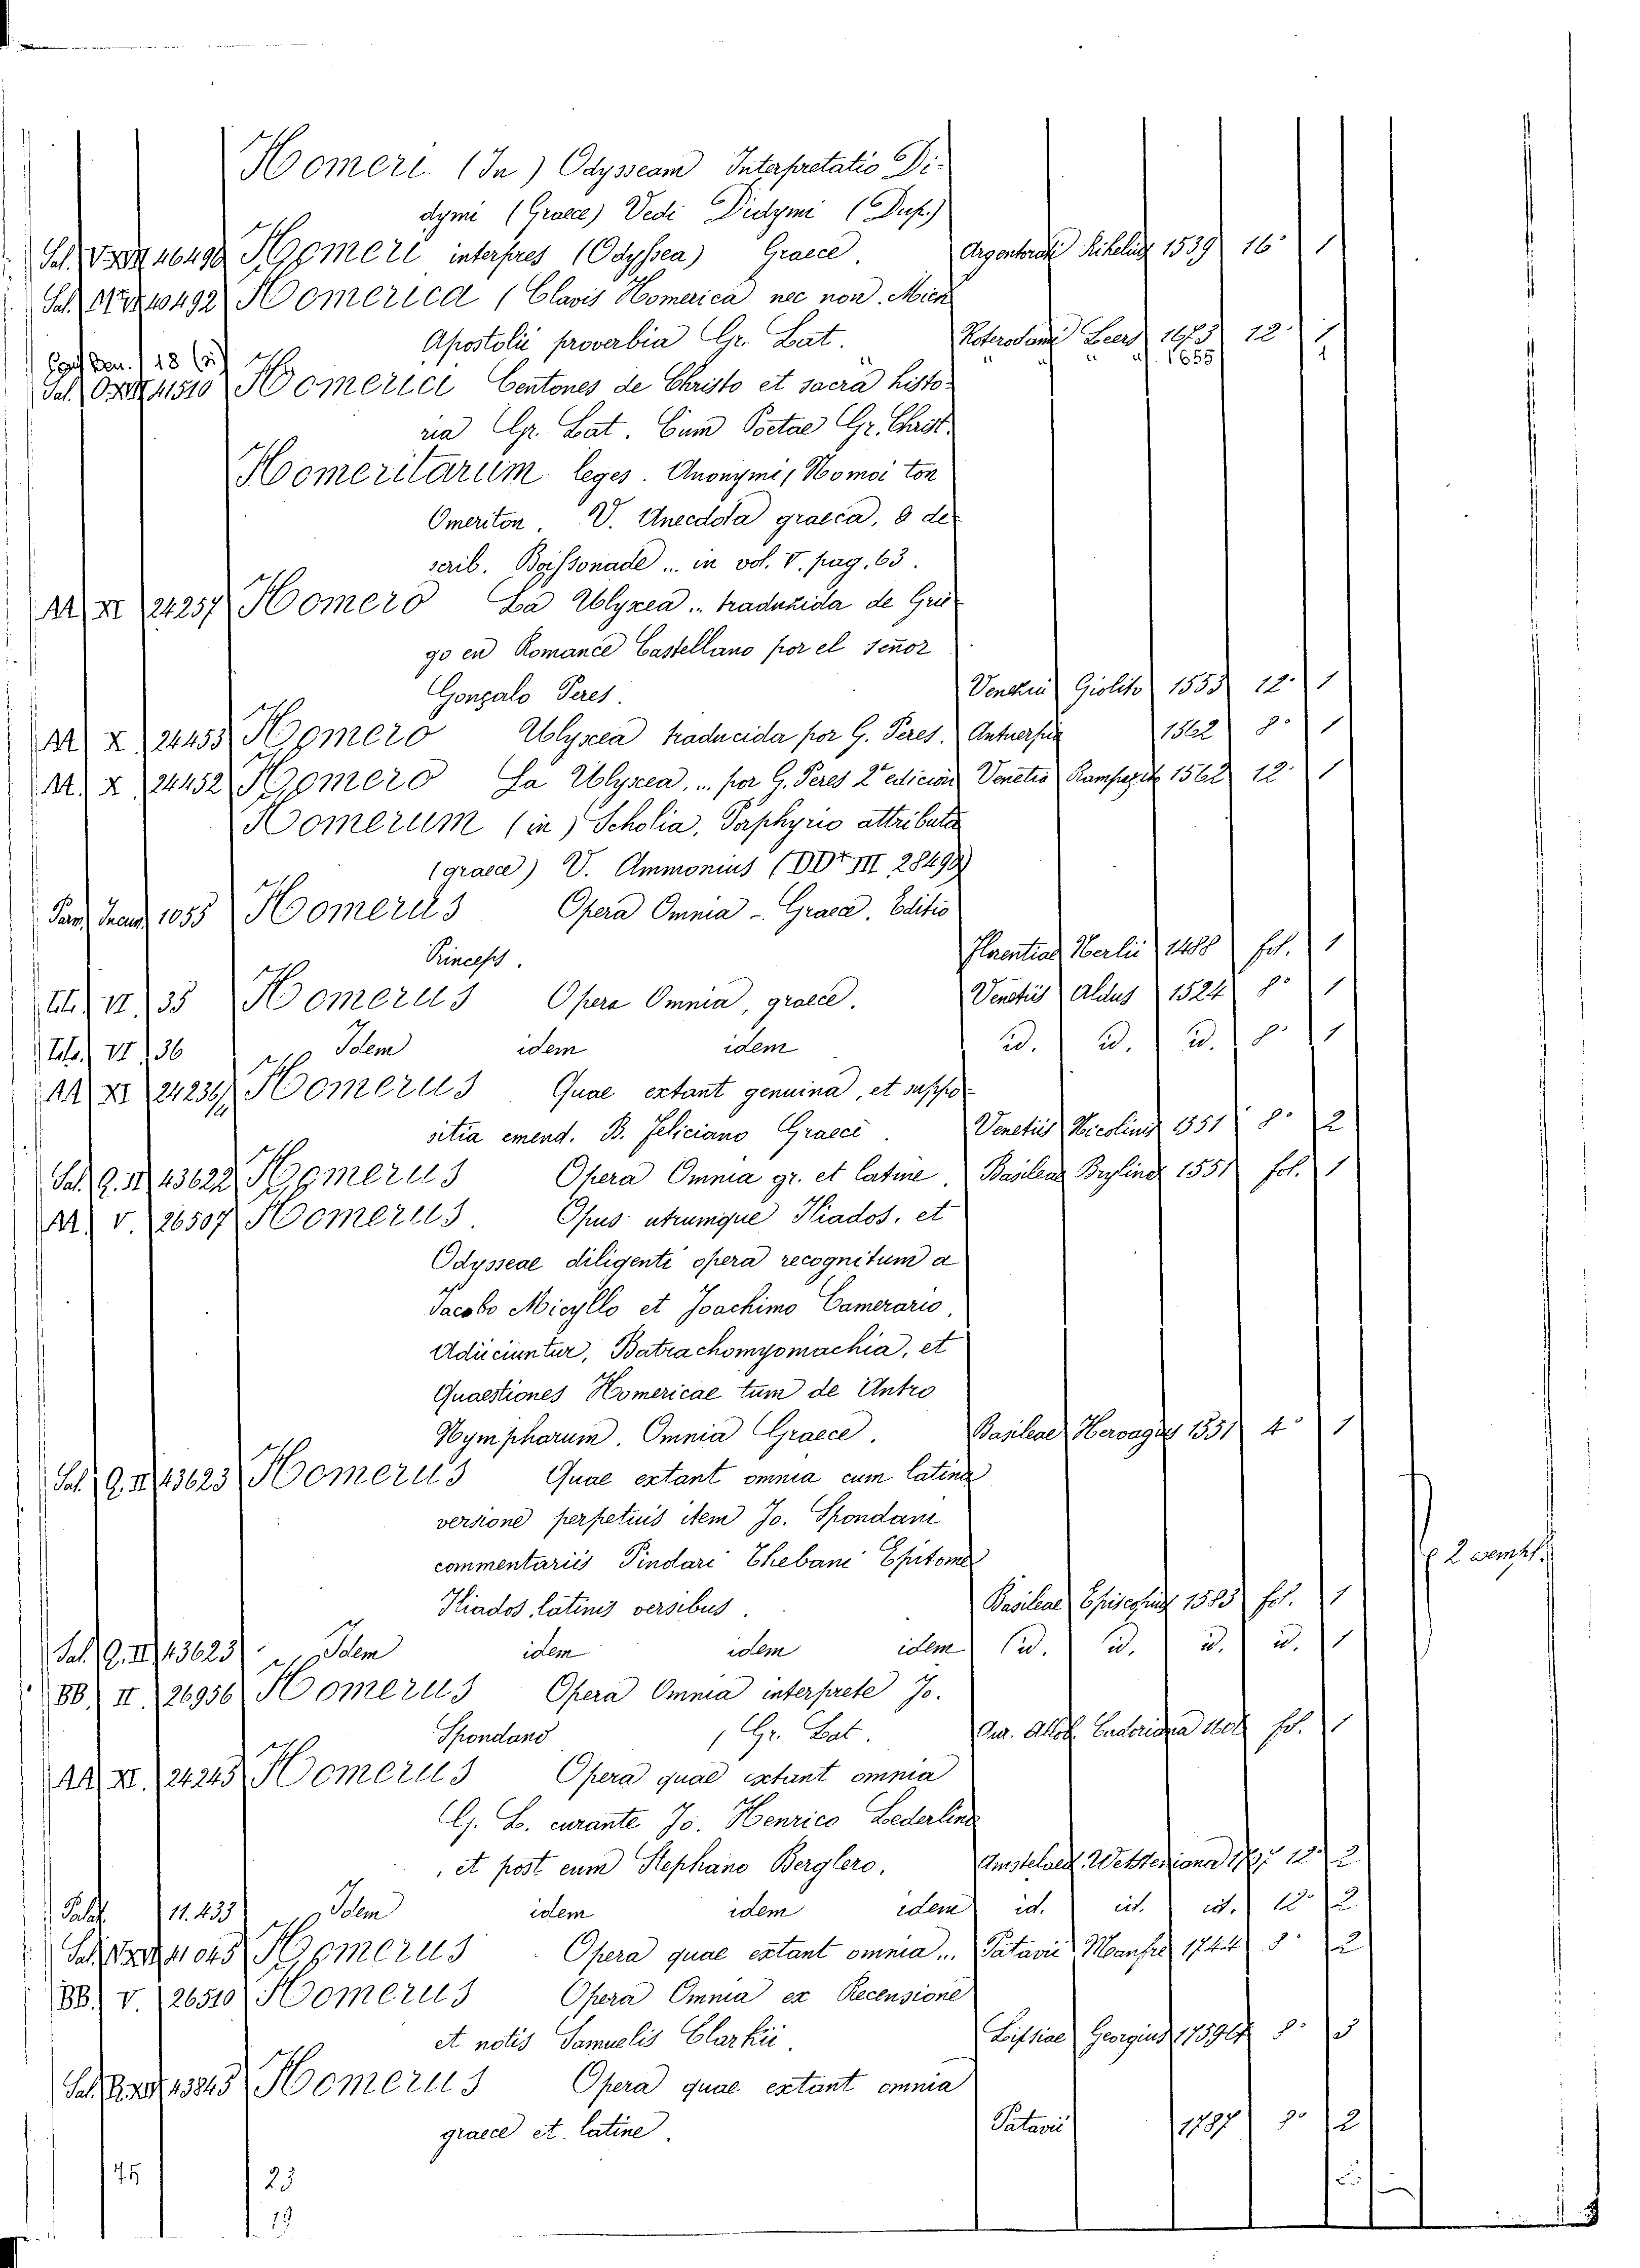 Homeri (In) Odysseam Interpretatio Di-
dymi (Graece) Vedi Didymi (Dup.)
46490 Homeri interpres (Odyssea) Graece. 1539 16° 1
40492 Homerica (Clavis Homerica nec non. Mich
Apostolii proverbia Gr. Lat. Leers 1673 12° 1
18 1655 1
41510 Homerici Centones de Christo et sacra histo-
ria Gr. Lat. Cum Poetae Gr. Christ.
Homeritarum leges. Anonymi, Nomoi ton
Omeriton, V. Anecdota graeca, e de-
scrib. Boissonade ... in vol. V. pag. 63.
AA XI 24257 Homero La Ulyxea .. traduzida de Grie
go en Romance Castellano por el señor
Gonçalo Peres. Giolito 1553 12° 1
AA X 24453 Homero Ulyscea traducida por G. Peres. 1562 8° 1
AA X 24452 Homero La Ulyxea, .. por G. Peres 2ª edicion Venetia 1562 12° 1
Homerum (in) Scholia, Porphyrio attributa
(graece) V. Ammonius (DDr III 28498)
1055 Homerus Opera Omnia - Graece. Editio
Princeps. Florentiae 1488 fol. 1
VI. 35 Homerus Opera Omnia, graece. Venetiis Aldus 1524 8° 1
VI 36 Idem idem idem id. id. id. 8° 1
AA XI Homerus Quae extant genuina, et suppo-
sitia emend. B. Feliciano Graece. Venetiis Nicolinus 1551 8° 2
Sal. Q. II 43622 Homerus Opera Omnia gr. et latine. Basileae Brylinger 1551 fol. 1
AA V. 26507 Homerus. Opus utrumque Iliados, et
Odysseae diligenti opera recognitum a
Jacobo Micyllo et Joachimo Camerario,
Adiiciuntur, Batrachomyomachia, et
Quaestiones Homericae tum de Antro
Nympharum. Omnia Graece. Basileae Hervagius 1551 4° 1
Sal. Q. II 43623 Homerus Quae extant omnia cum latina
versione perpetuis item Jo. Spondani
commentariis Pindari Thebani Epitome
Iliados, latinis versibus. Basileae Episcopius 1583 fol. 1
2 esempl.
Sal. Q. II 43623 Idem idem idem idem id. id. id. id. 1
BB II. 26936 Homerus Opera Omnia interprete Jo.
Spondano, Gr. Lat. Aur. Allob. fol. 1
AA XI. 24245 Homerus Opera quae extant omnia
G. L. curante Jo. Henrico Lederlino
, et post eum Stephano Berglero. Amstelaed. Wetsteniana 12° 2
Palat. 11.433 Idem idem idem idem id. id. id. 12° 2
41045 Homerus Opera quae extant omnia... Patavii, Manfrè 1744 8° 2
BB. V. 26510 Homerus Opera Omnia ex Recensione
et notis Samuelis Clarkii. Lipsiae Georgius 8° 5
43845 Homerus Opera quae extant omnia
graece et latine. Patavii 1787 8° 2
23
19